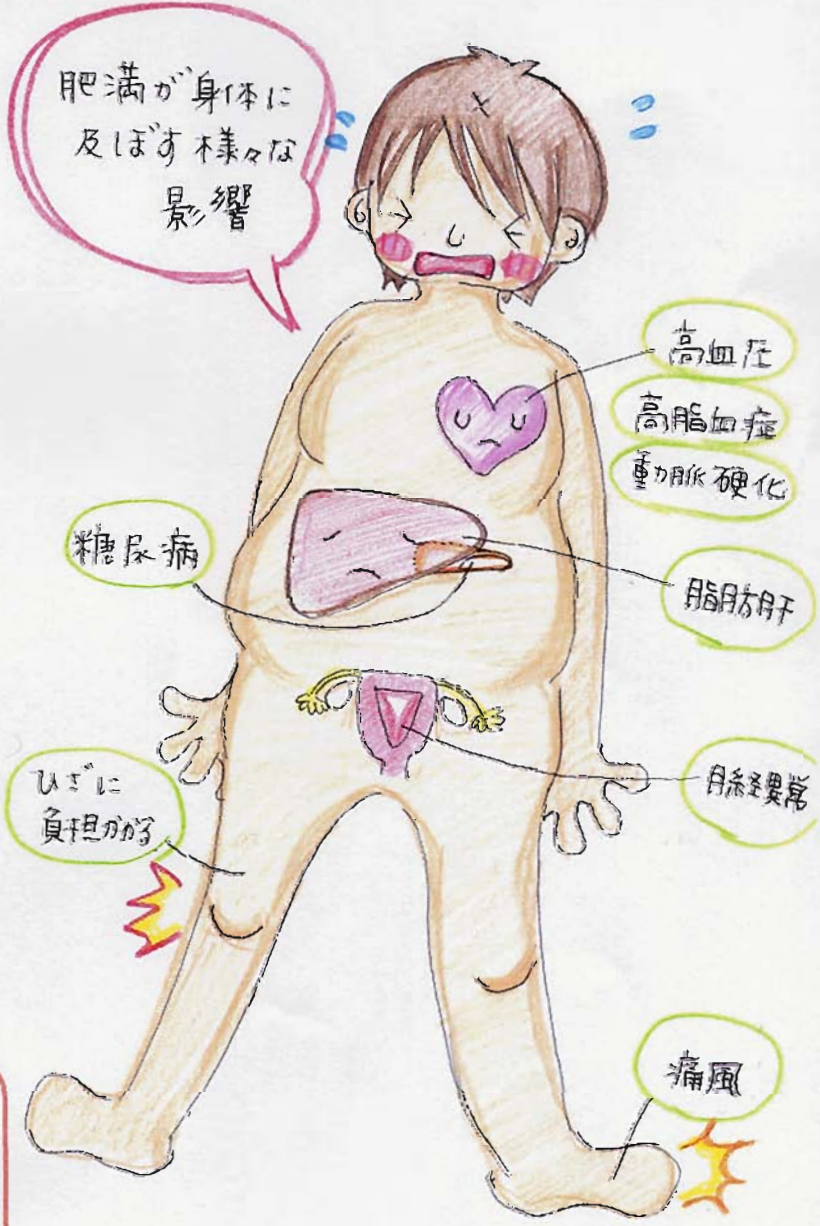 肥満が身体に
及ぼす様々な
影響
高血圧
高脂血症
動脈硬化
糖尿病
脂肪肝
ひざに
負担かかる
月経異常
痛風